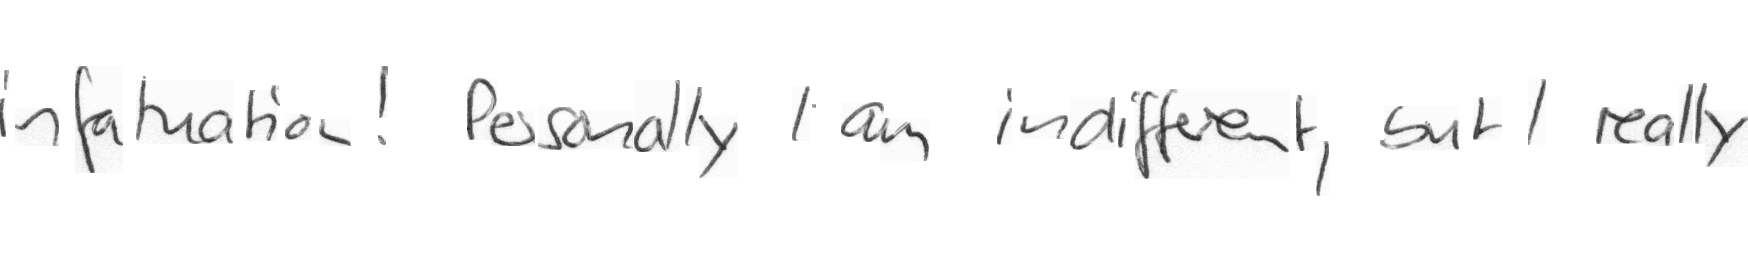 infatuation! Personally I am indifferent, but I really